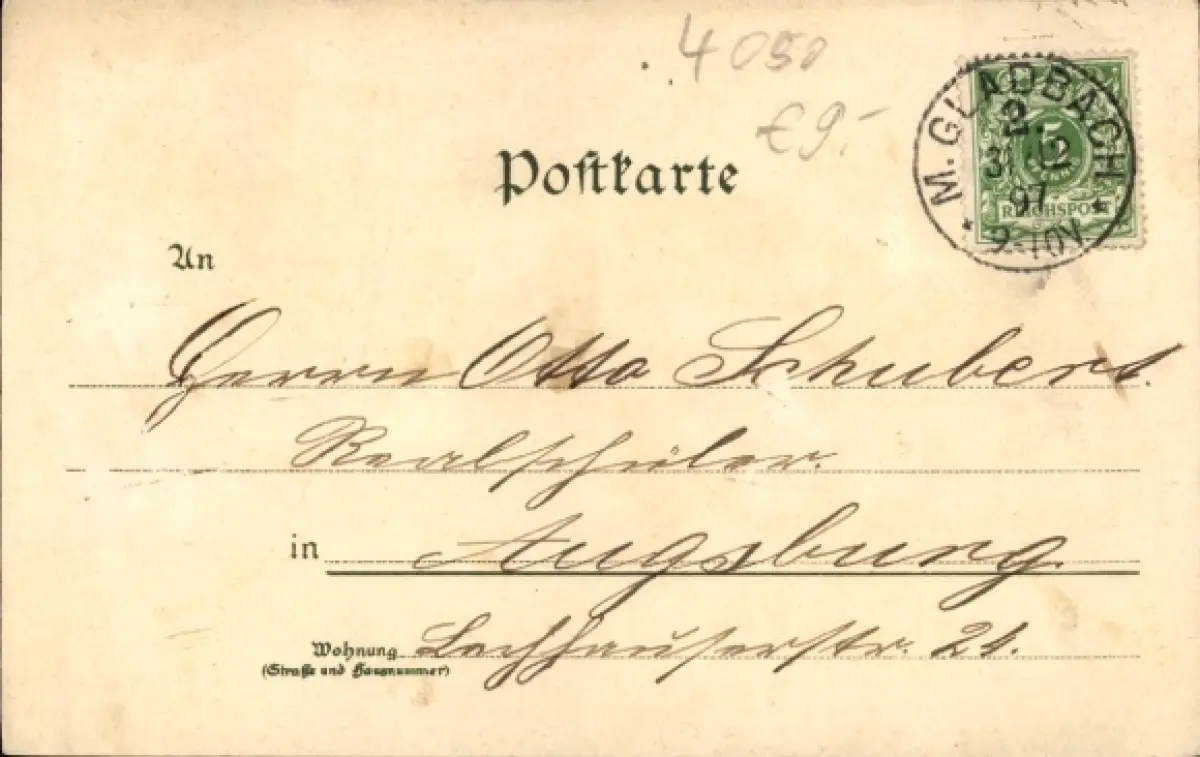 4050
€9.-
Postkarte
M. GLADBACH
2.
31 12
97
9-10V.
5
REICHSPOST
An
Herrn Otto Schubert.
Realschüler.
in Augsburg.
Wohnung
(Straße und Hausnummer)